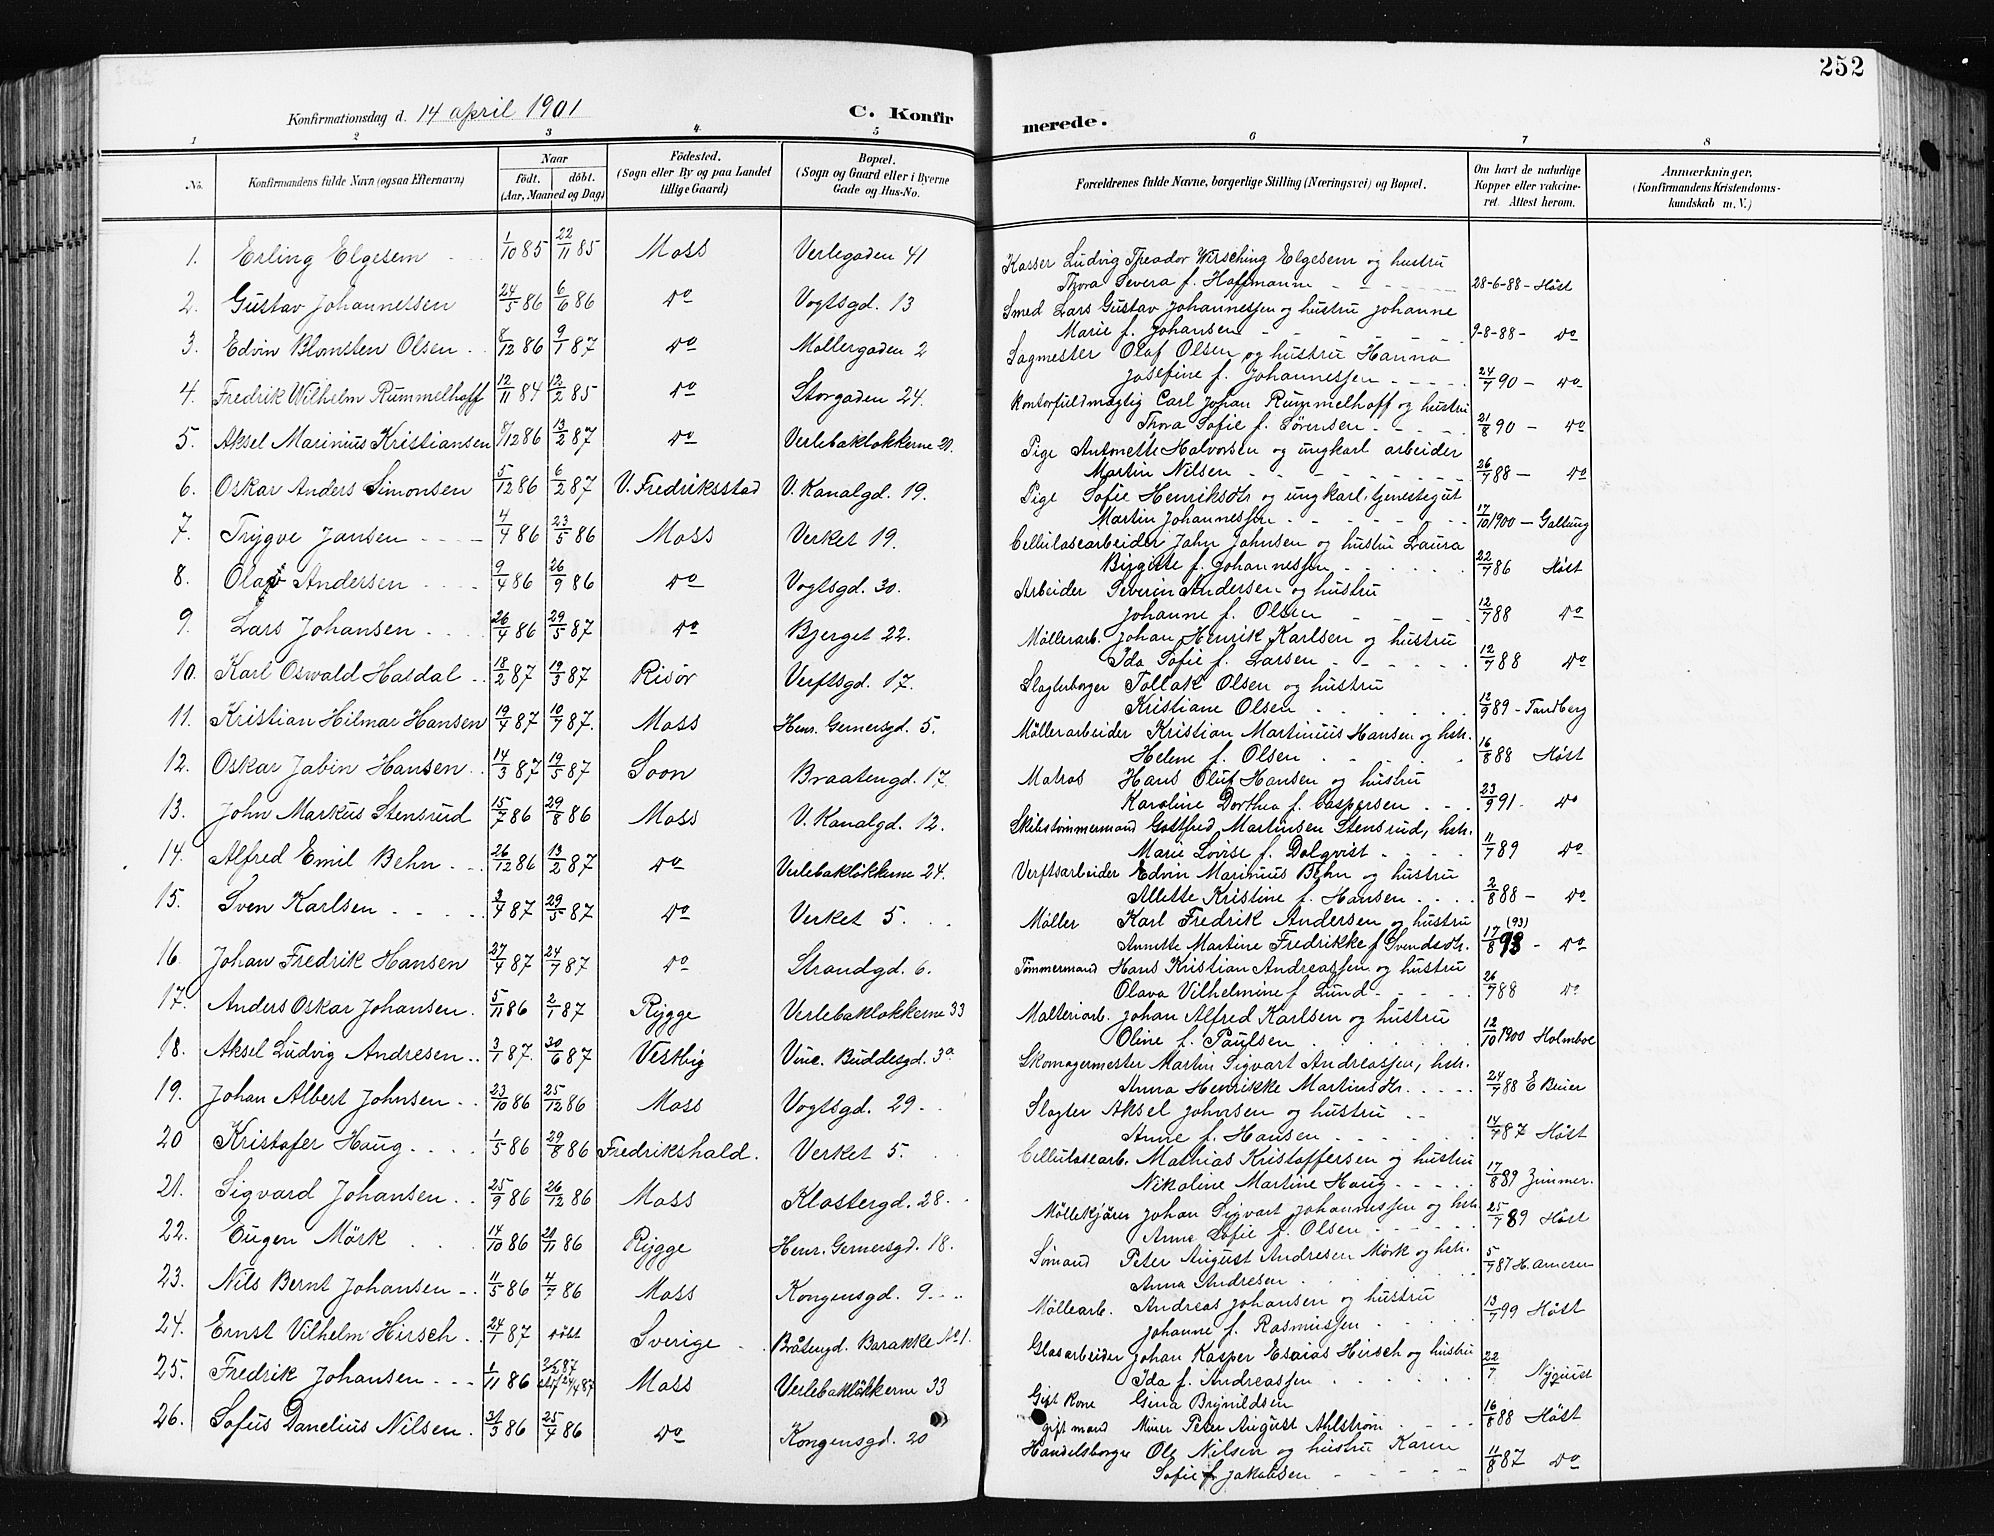 252
Konfirmationsdag d. 14 april 1901
C. Konfirmerede.
1 2 3 4 5 6 7 8
No. | Konfirmandens fulde Navn (ogsaa Efternavn) | Naar födt. döbt. (Aar, Maaned og Dag) | Födested. (Sogn eller By og paa Landet tillige Gaard) | Bopæl. (Sogn og Gaard eller i Byerne Gade og Hus-No. | Forældrenes fulde Navne, borgerlige Stilling (Næringsvei) og Bopæl. | Om havt de naturlige Kopper eller vakcineret. Attest herom. | Anmærkninger, (Konfirmandens Kristendomskundskab m. V.)
1. Erling Elgesem 1/10 85 22/11 85 Moss Verlegaden 41 Kasser Ludvig Theodor Wirsching Elgesem og hustru
Thora Severa f. Hoffmann 28-6-88 - Høst
2. Gustav Johannessen 24/5 86 6/6 86 do Vogtsgd. 13 Smed Lars Gustav Johannessen og hustru Johanne
Marie f. Johansen 9-8-88 - do
3. Edvin Blomsten Olsen /12 86 9/1 87 do Møllergaden 2 Sagmester Olaf Olsen og hustru Hanna
Josefine f. Johannessen 24/7 90 - do
4. Fredrik Wilhelm Rummelhoff 12/11 84 12/2 85 do Storgaden 24. Kontorfuldmægtig Carl Johan Rummelhoff og hustru
Thora Sofie f. Sørensen 21/8 90 - do
5. Aksel Marinius Kristiansen /12 86 13/2 87 do Verlebakløkkerne 20. Pige Antonette Halvorsen og ungkarl arbeider
Martin Nilsen 26/7 88 - do
6. Oskar Anders Simonsen 5/12 86 6/2 87 V. Fredriksstad V. Kanalgd. 19. Pige Sofie Henriksdtr og ungkarl tjenestegut
Martin Johannessen 17/10 1900 - Galtung
7. Trygve Jansen 4/4 86 23/5 86 Moss Verket 19. Cellulosearbeider John Johnsen og hustru Laura
Birgitte f. Johannessen 22/7 86 Høst
8. Olaf Andersen 9/4 86 26/9 86 do Vogtsgd. 30. Arbeider Severin Andersen og hustru
Johanne f. Olsen 12/7 88 do
9. Lars Johansen 26/4 86 29/5 87 do Bjerget 22. Møllerarb. Johan Henrik Karlsen og hustru
Ida Sofie f. Larsen 12/7 88 do
10. Karl Oswald Hasdal 18/2 87 19/3 87 Risør Verftsgd. 17. Slagterborger Tollak Olsen og hustru
Kristiane Olsen 12/9 89 - Tandberg
11. Kristian Hilmar Hansen 19/4 87 10/7 87. Moss Henr. Gernersgd. 5. Møllerarbeider Kristian Martinius Hansen og hstr.
Helene f. Olsen 16/8 88 Høst
12. Oskar Jabin Hansen 14/3 87 19/5 87 Soon Braatengd. 17. Matros Hans Oluf Hansen og hustru
Karoline Dorthea f. Caspersen 23/9 91. do
13. John Markus Stensrud 15/7 86 29/8 86 Moss V. Kanalgd. 12. Skibstømmermand Gottfred Martinsen Stensrud, hstr.
Marie Lovise f. Dolqvist 11/7 89 do
14. Alfred Emil Behn 26/12 86 13/2 87 do Verlebakløkkerne 24. Verftsarbeider Edvin Marinius Behn og hustru
Allette Kristine f. Hansen 2/8 88 - do
15. Sven Karlsen 3/4 87 29/5 87 do Verket 5. Møller Karl Fredrik Andersen og hustru
Annette Martine Fredrikke f Svendsdtr. 17/8 93 (93) - do
16. Johan Fredrik Hansen 27/4 87 24/7 87 do Strandgd. 6. Tømmermand Hans Kristian Andreassen og hustru
Olava Vilhelmine f Lund 26/7 88 do
17. Anders Oskar Johansen 5/11 86 2/1 87 Rygge Verlebakløkkerne 33 Malteriarb. Johan Alfred Karlsen og hustru
Oline f. Paulsen 12/10 1900 Holmboe
18. Aksel Ludvig Andresen 3/1 87. 30/6 87 Vestby Vinc. Buddesgd. 3a Skomagermester Martin Sigvart Andreassen, hstr.
Anna Henrikke Martinsdtr. 24/7 88 E Beier
19. Johan Albert Johnsen 23/10 86 25/12 86 Moss Vogtsgd. 29. Slagter Aksel Johnsen og hustru
Anne f. Hansen 14/7 87 Høst
20 Kristofer Haug 1/5 86 29/8 86 Fredrikshald. Verket 5. Cellulosearb. Mathias Kristoffersen og hustru
Nikoline Martine Haug 17/8 89 Zimmer.
21. Sigvard Johansen 25/9 86 26/12 86 Moss Klostergd. 28. Møllekjører Johan Sigvart Johannessen og hstr.
Anna Sofie f. Olsen 25/7 89 Høst
22. Eugen Mörk 14/10 86 21/11 86 Rygge Henr. Gernersgd. 18. Sømand Peter August Andresen Mörk og hstr.
Anna Andresen 5/7 87 H. Arnesen
23. Nils Bernt Johansen 11/5 86 4/7 86 Moss Kongensgd. 9 Møllearb. Andreas Johansen og hustru
Johanne f. Rasmussen 13/7 99 Høst
24. Ernst Vilhelm Hirsch 24/1 87 døbt Sverige Bråtengd. Barakke No 1. Glasarbeider Johan Kasper Esaias Hirsch og hustru
Ida f. Andreassen 22/7 Nyquist
25. Fredrik Johansen 1/11 86 Moss Verlebakløkkerne 33 Gift Kone Gina Brynildsen
gift mand Murer Peter August Ahlstrøm 16/8 88 Høst
26. Sofus Danelius Nilsen 31/3 86 25/4 86 do Kongensgd. 20 Handelsborger Ole Nilsen og hustru Karen
Sofie f Jakobsen 11/8 87 do